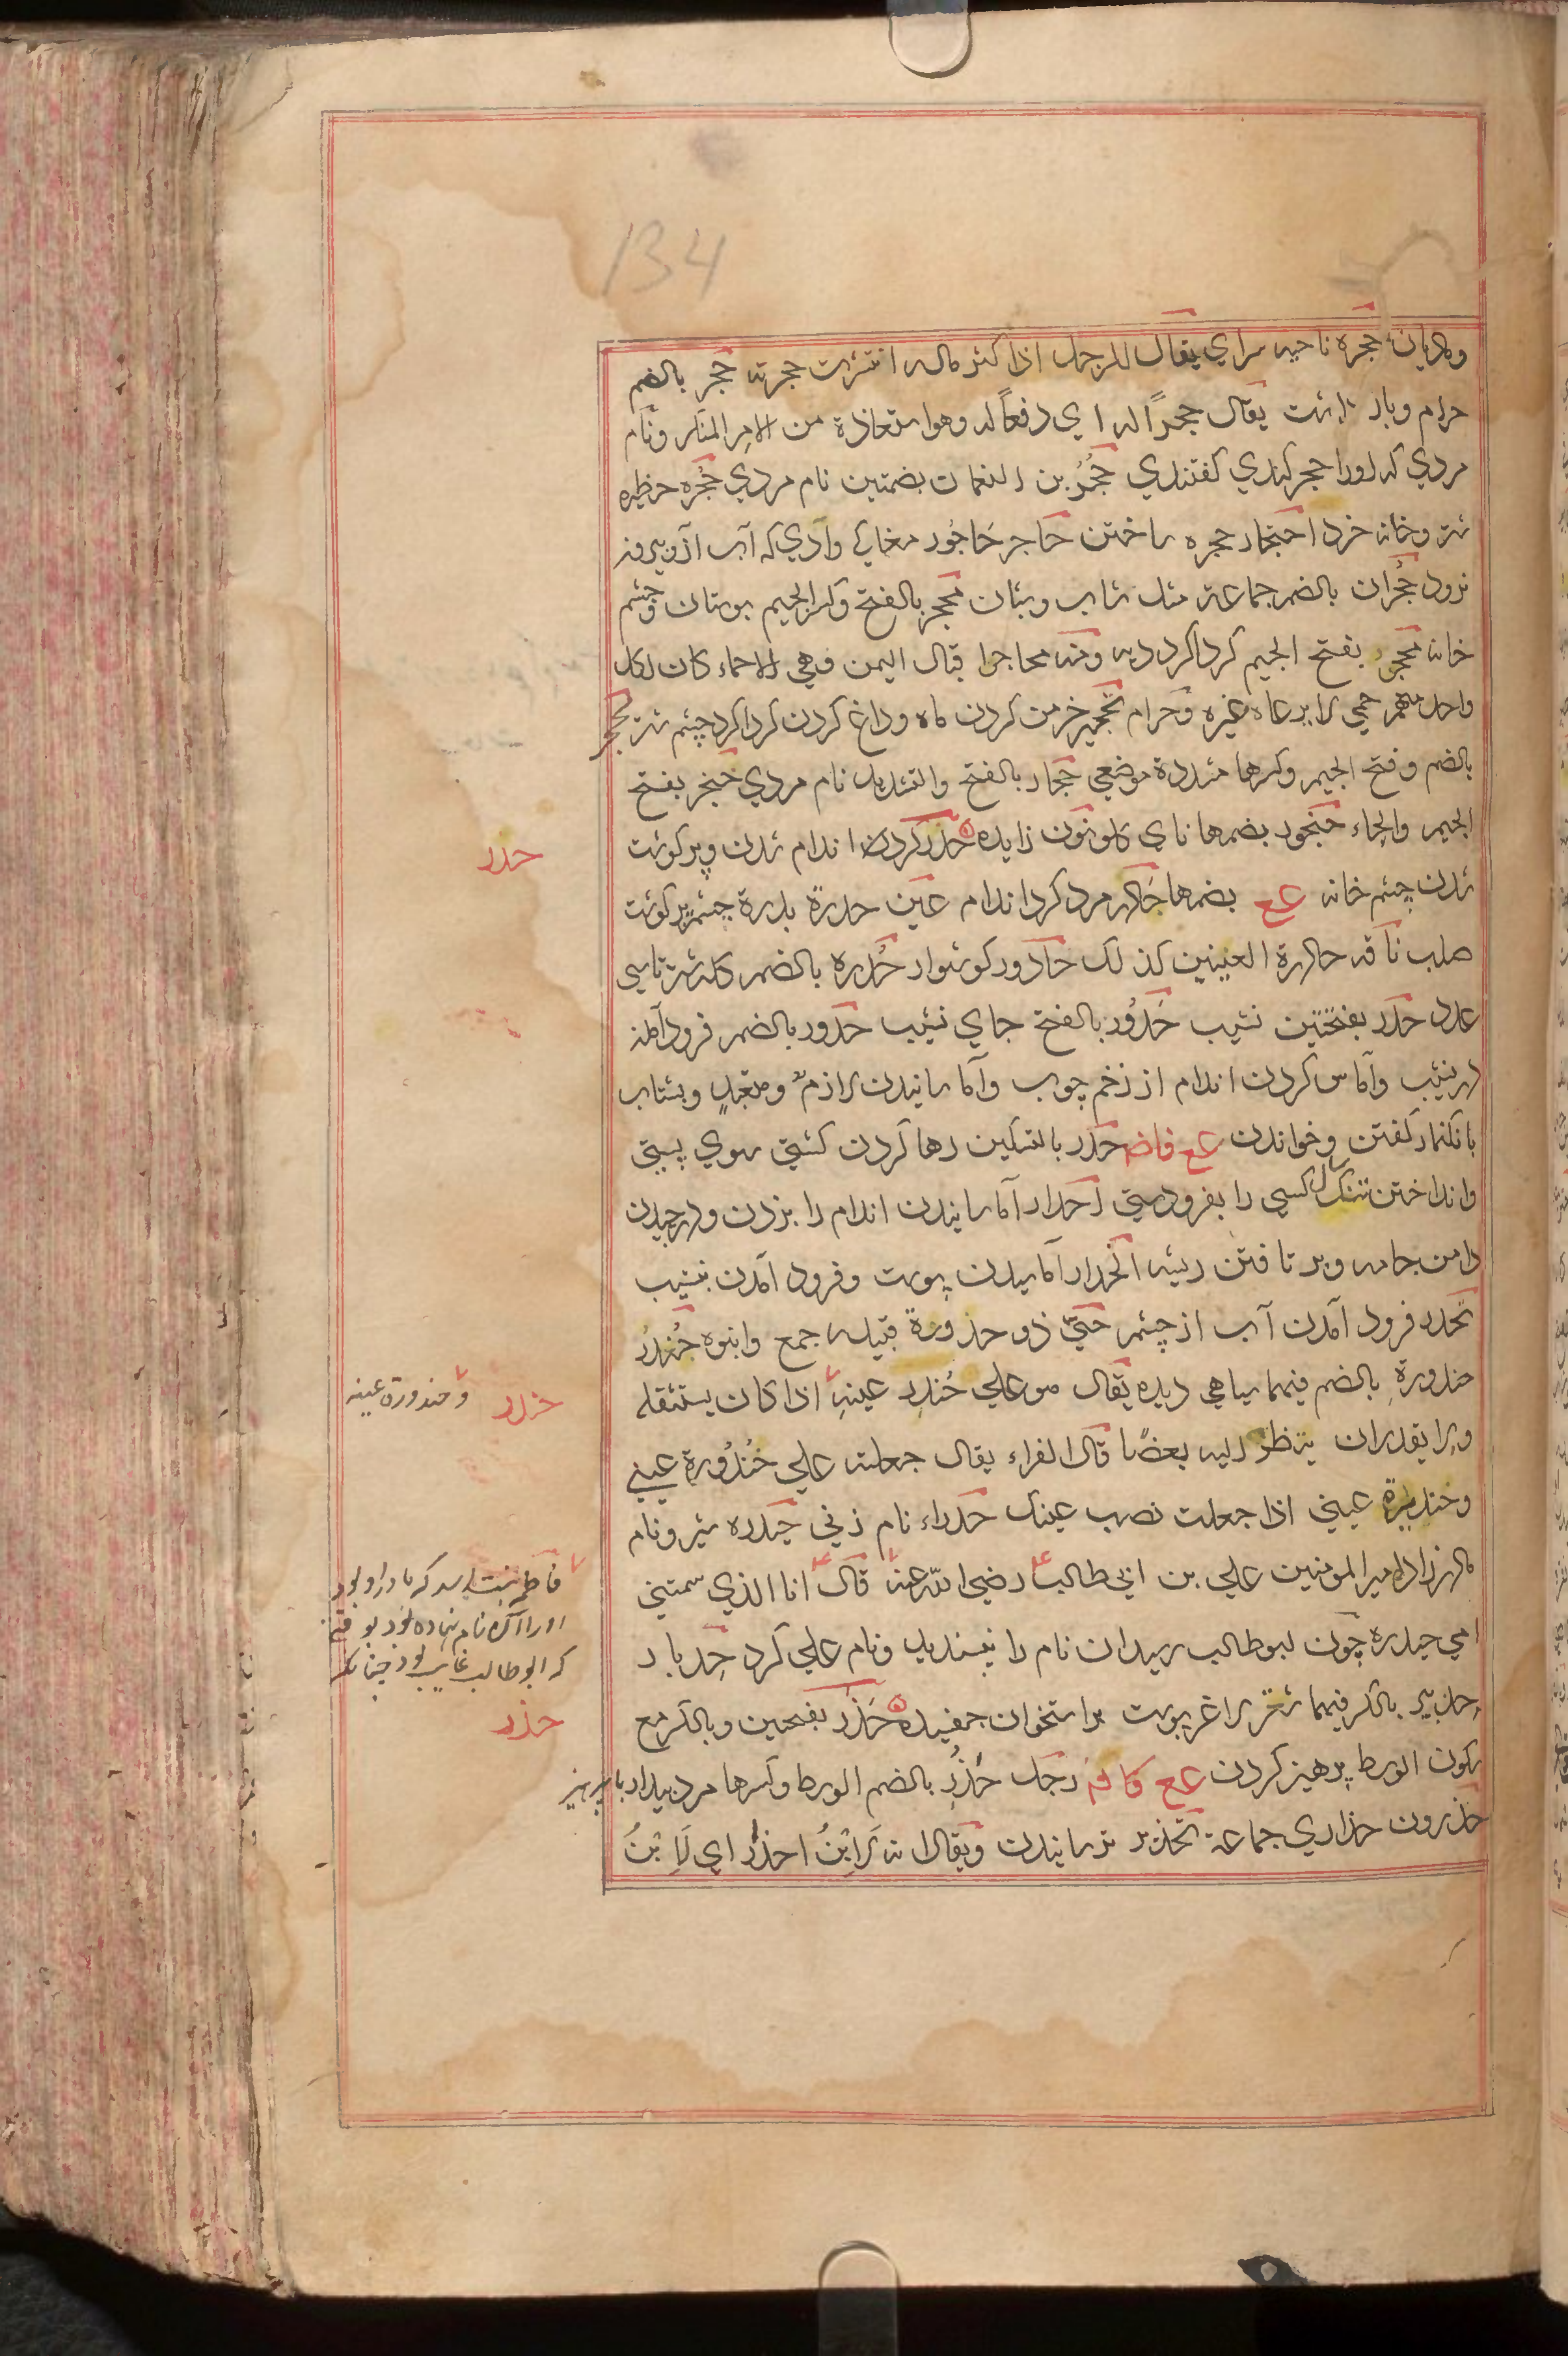 134
ومادیان حجرة ناحیه سرای یقال للرجل اذا کثر ماله انتشرت حجرته حجر بالضم
حرام وباز داشت یقال حجرًا له ای دفعًا له وهو استعاذة من الامر المنکر ونام
مردی که اورا حجر کندی کفتندی حُجُر بن النعمان بضمتین نام مردی حجره حظیره
شتر وخانه خرد احتجار حجره ساختن حاجر حَاجُور مغاکی وادی که آب ازو بیرون
نرود حُجْران بالضم جماعة مثل شاب وشبان محجر بالفتح وکسر الجیم بوستان وچشم
خانه محجر بفتح الجیم کرداکرد دیه ومنه محاجر اقیال الیمن وهی الاحماء کان لکل
واحد منهم حمی لا یرعاه غیره وحرام تحجیر خرمن کردن ماه وداغ کردن کرداکرد چشم شتر محجر
بالضم وفتح الجیم وکسرها مشددة موضعی حجار بالفتح والتشدید نام مردی حنجر بفتح
الجیم والحاء حنجور بضمها نای کلو ونون زایده حدر کردن اندام شدن وپر کوشت
شدن چشم خانه عع بضمها حادر مرد کرد اندام عین حدرة بدرة چشم پر کوشت
صلب ناقه حادرة العینین کذلک حادور کوشوار حُدره بالضم کله شتر تا سی
عدد حدر بفتحتین نشیب حَدُور بالفتح جای نشیب حدور بالضم فرود آمدن
در نشیب وآماس کردن اندام از زخم چوب وآماسانیدن لازم ومتعد وبشتاب
بانکنماز کفتن وخواندن عع فاض حدر بالتسکین رها کردن کشتی سوی پستی
وانداختن تنک کسی را بفرودستی احدار آماسانیدن اندام را بزدن ودرچیدن
دامن جامه وبر تافتن ریشه انحدار آماسیدن پوست وفرود آمدن بنشیب
تحدر فرود آمدن آب از چشم حیّ ذو حدورة قبیله جمع وانبوه حُندُر
حندورة بالضم فیهما سیاهی دیده یقال هو علی حُندر عینه اذا کان یستثقله
ولا یقدر ان ینظر الیه بعضًا قال الفراء یقال جعلته علی حُندُورة عینی
وحندیرة عینی اذا جعلت نصب عینک حدراء نام زنی حیدره شیر ونام
مادرزاد امیر المومنین علی بن ابی طالب رضی الله عنه قال انا الذی سمتنی
امی حیدرة چون ابوطالب رسید آن نام را نپسندید ونام علی کرد حدبار
حدبیر بالکسر فیهما شتر لاغر پوست بر استخوان چفسیده حَذَر بفتحین وبالکسر مع
سکون الوسط پرهیز کردن عع کا فه رجل حذُر بالضم الوسط وکسرها مرد بیدار با پرهیز
حذرون حذاری جماعة تحذیر ترسانیدن ویقال انه لَابنُ احذار ای لَابنُ
حدر
حندر
وحندورة عینه
فاطمه بنت اسد که مادر او بود
اورا آن نام نهاده بود بوقتی
که ابوطالب غایب بود چنانکه
حذر